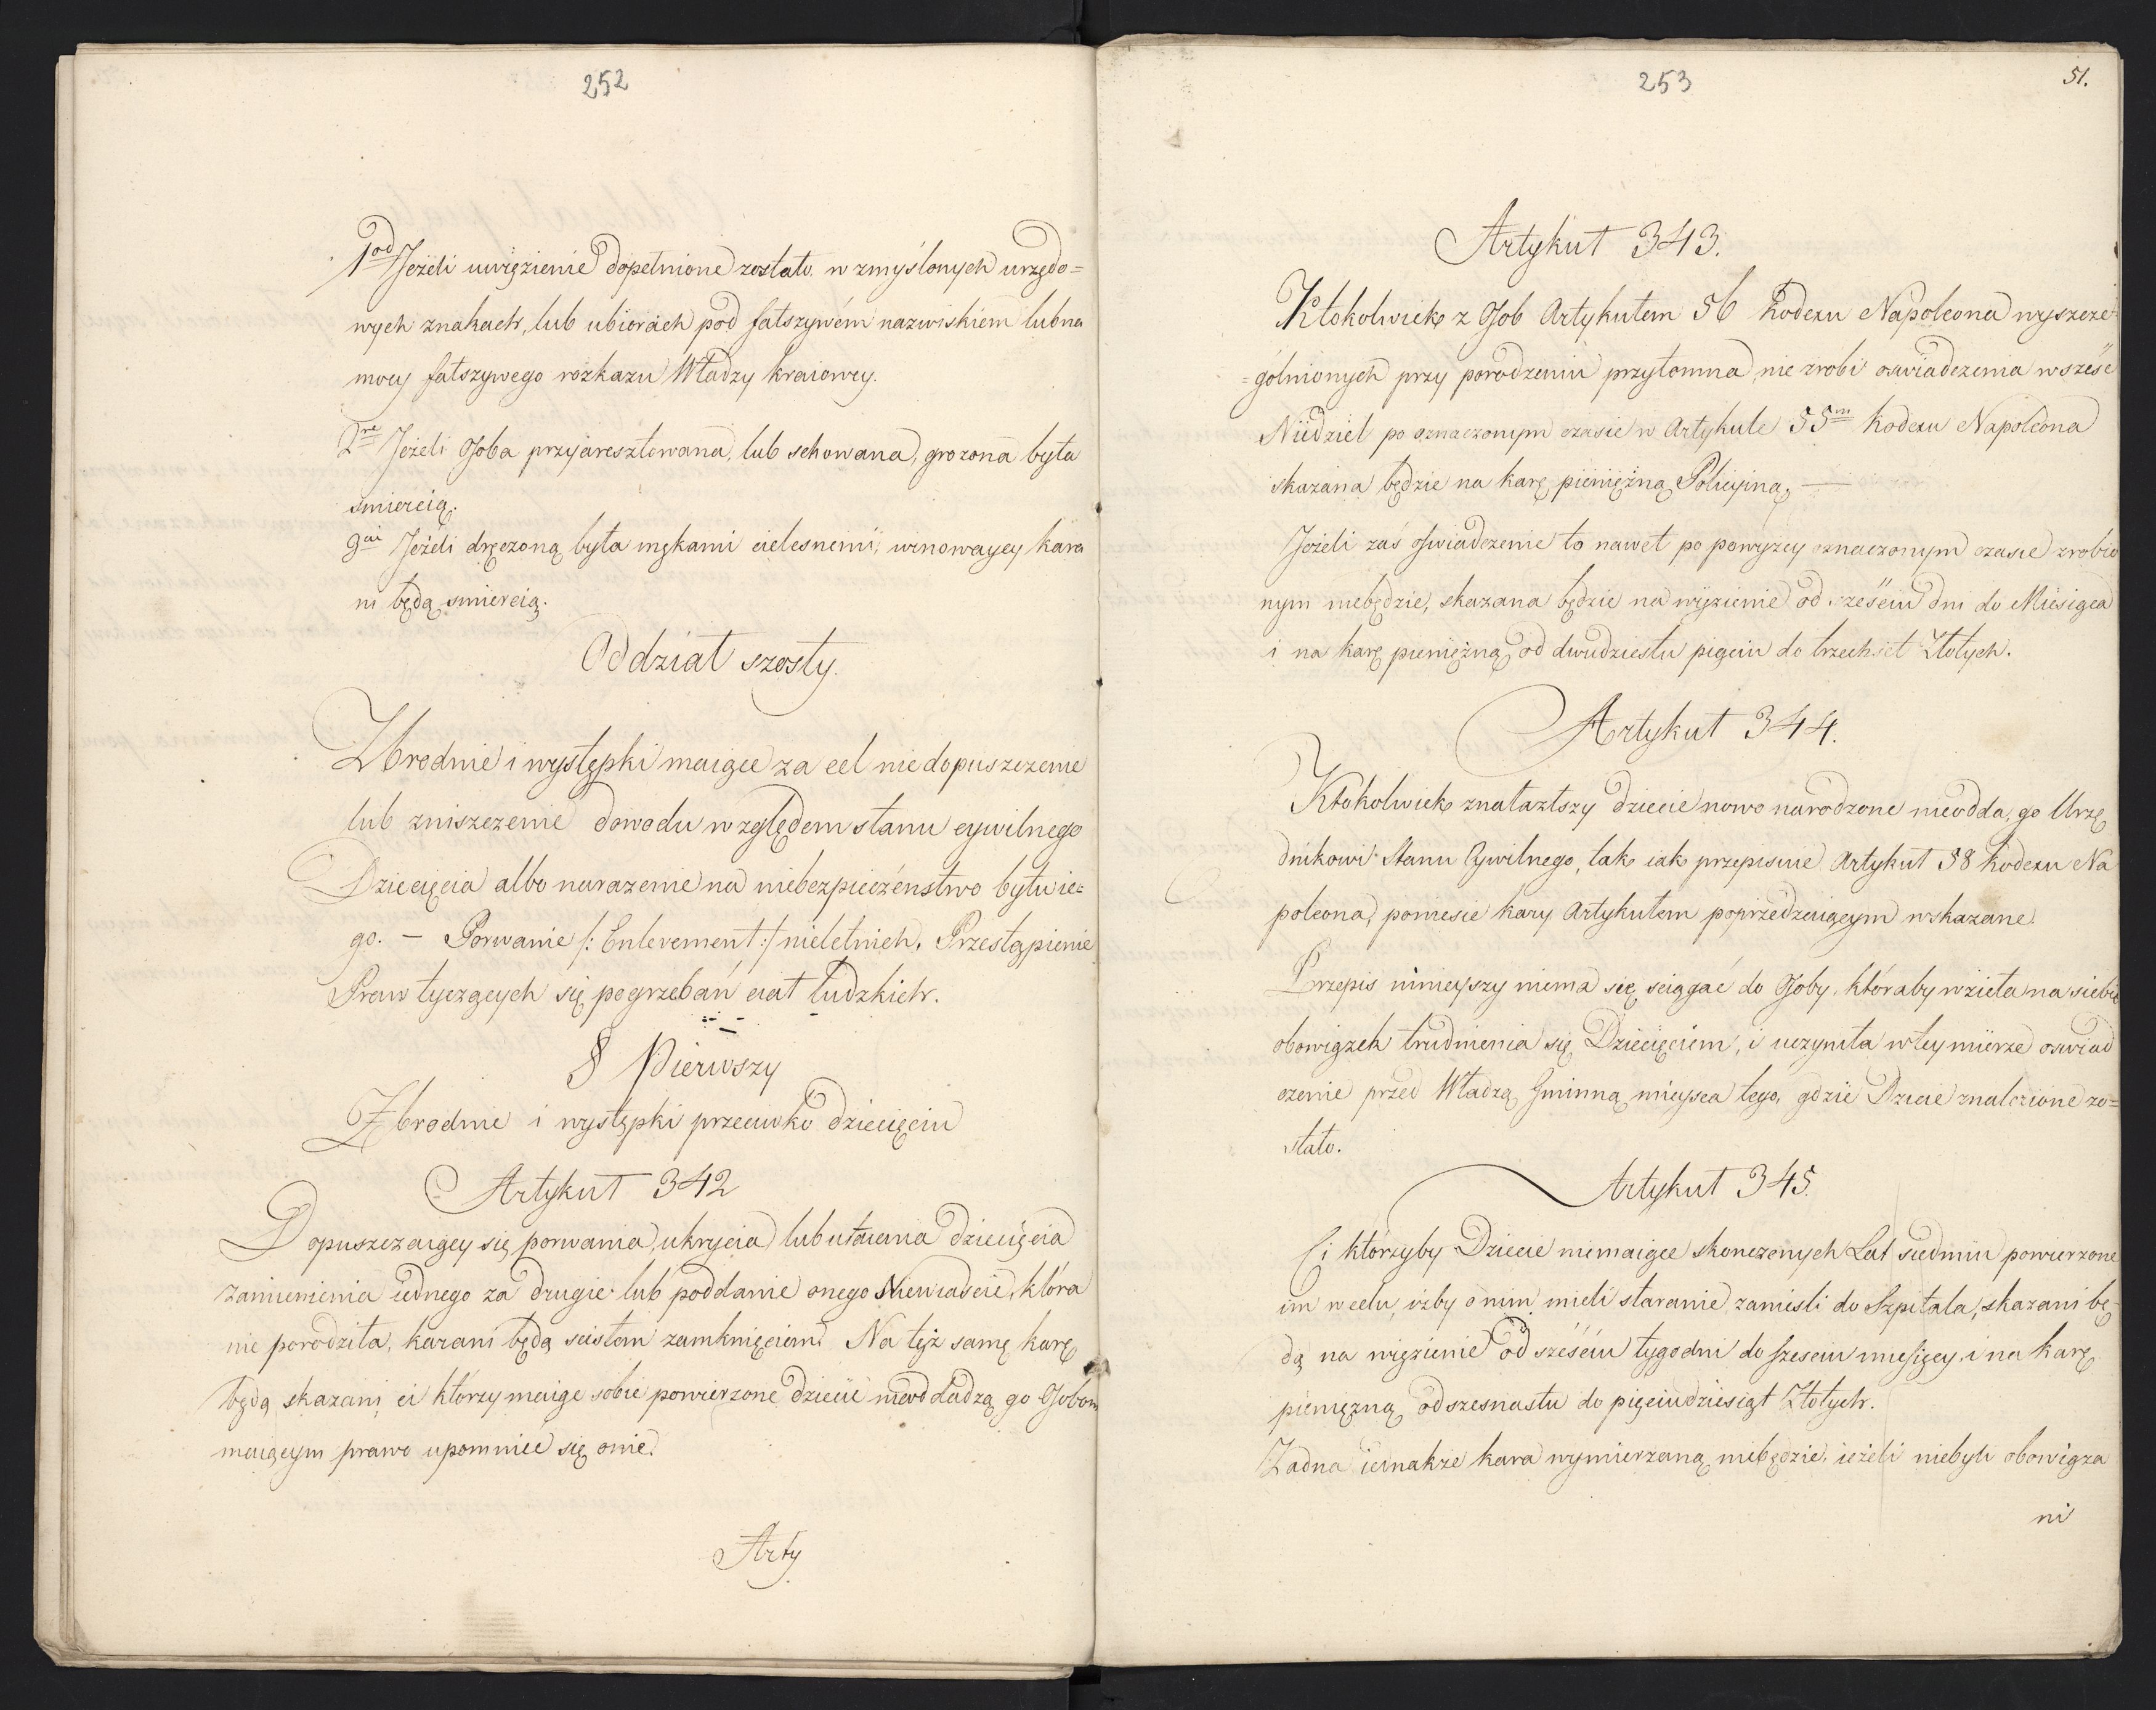 252
1od Jeżeli uwięzienie dopełnione zostało w zmyślonych urzędo=
wych znakach, lub ubiorach pod fałszywém nazwiskiem lub na
mocy fałszywego rozkazu Władzy kraiowey.
2re Jeżeli Osoba przyaresztowana, lub schowana, grozona była
smiercią.
3cie Jeżeli dręczoną była mękami cielesnemi, winowaycy kara
ni będą smiercią.
Oddział szosty.
Zbrodnie i występki maiące za cel niedopuszczenie
lub zniszczenie dowodu względem stanu cywilnego
Dziecięcia albo narazenie na niebezpieczenstwo bytu ie=
go. – Porwanie /: Enlevement :/ nieletnich, Przestąpienie
Praw tyczących się pogrzebań ciał ludzkich.
§ Pierwszy
Zbrodnie i występki przeciwko dziecięciu
Artykuł 342
Dopuszczaiący się porwania, ukrycia lub utaienia dziecięcia
zamienienia iednego za drugie lub poddanie onego Niewiascie, która
nie porodziła, karani będą scisłem zamknięciem. Na tęż samę karę
będą skazani ci którzy maiąc sobie powierzone dziecie nieoddadzą go Osobom
maiącym prawo upomnieć się onie.
Arty
253
51.
Artykuł 343.
Ktokolwiek z Osob Artykułem 56 Kodexu Napoleona wyszcze=
=gólnionych przy porodzeniu przytomna, nie zrobi oswiadczenia w sześć
Niedziel po oznaczonym czasie w Artykule 55m Kodexu Napoleona
skazana będzie na karę pieniężną Policyiną. —
Jeżeli zaś oświadczenie to nawet po powyżey oznaczonym czasie zrobio
nym niebędzie, skazana będzie na więzienie od sześciu dni do Miesiąca
i na karę pieniężną od dwudziestu pięciu do trzechset Złotych.
Artykuł 344.
Ktokolwiek znalazłszy dziecie nowo narodzone nieodda, go Urzę
dnikowi Stanu Cywilnego, tak iak przepisuie Artykuł 58 Kodexu Na
poleona, poniesie kary Artykułem poprzedzaiącym wskazane.
Przepis ninieyszy niema się sciągać do Osoby, któraby wzieła na siebie
obowiązek trudnienia się Dziecięciem, i uczyniła w tey mierze oswiad
czenie przed Władzą Gminną mieysca tego, gdzie Dziecie znalezione zo=
stało.
Artykuł 345.
Ci którzyby Dziecie niemaiące skonczonych Lat siedmiu powierzone
im w celu, iżby o nim mieli staranie, zaniesli do Szpitala, skazani bę-
dą na więzienie od sześciu tygodni do szesciu miesięcy, i na karę
pieniężną od szesnastu do pięciudziesiąt Złotych.
Żadna iednakże kara wymierzaną niebędzie, ieżeli niebyli obowiąza
ni